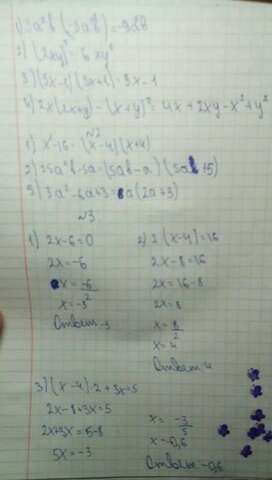 1) 3a²b (-3a²b) = -9ab
2) (2xy)³ = 6xy³
3) (3x-1)(3x+1) = 9x-1
4) 2x(2x+y) - (x+y)² = 4x + 2xy - x² + y²
№2
1) x²-16 = (x-4)(x+4)
2) 25a²b-5a = (5ab-a) (5ab+5)
3) 3a²-6a+3 = a(2a+3)
№3
1) 2x-6=0
2x=-6
x=-6/2
x=-3
Ответ-3
2) 2(x-4)=16
2x-8=16
2x=16-8
2x=8
x=8/2
x=4
Ответ 4
3) (x-4)·2+3x=5
2x-8+3x=5
2x+3x=5-8
5x=-3
x=-3/5
x=-0,6
Ответ -0,6